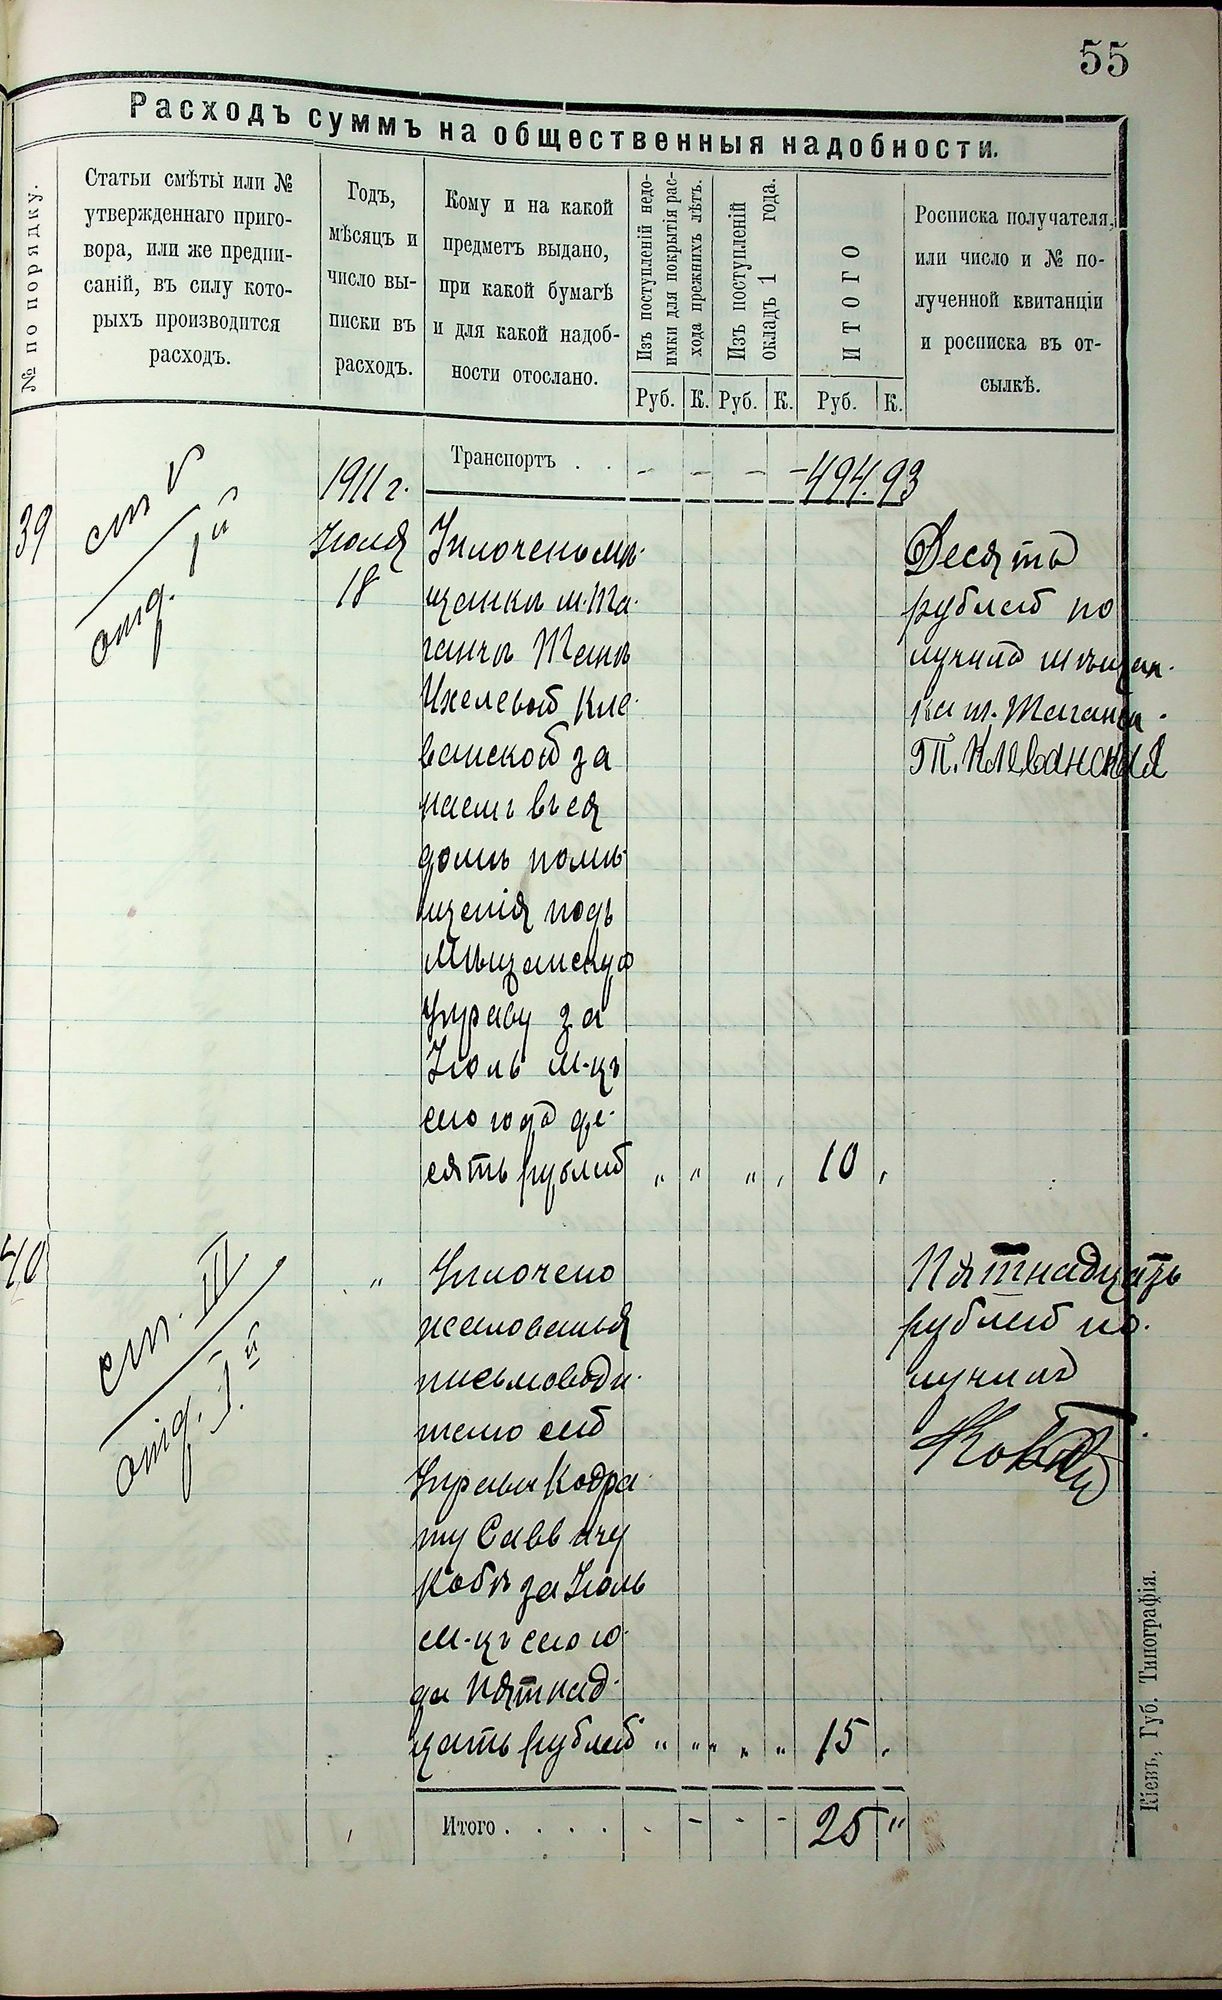 55
Расходъ суммъ на общественныя надобности.
№ по порядку.
Статьи смѣты или №
утвержденнаго приго-
вора, или же предпи-
саній, въ силу кото-
рыхъ производится
расходъ.
Годъ,
мѣсяцъ и
число вы-
писки въ
расходъ.
Кому и на какой
предметъ выдано,
при какой бумагѣ
и для какой надоб-
ности отослано.
Изъ поступленій недо-
имки для покрытія рас-
хода прежнихъ лѣтъ.
Руб. К.
Изъ поступленій
окладъ 1 года.
Руб. К.
ИТОГО
Руб. К.
Росписка получателя,
или число и № по-
лученной квитанціи
и росписка въ от-
сылкѣ.
Транспортъ . . - - - - 494. 93
39
ст V
отд. 1й
1911 г.
Іюля
18
Уплочено мѣ-
щанкѣ м. Та-
ганчи Танѣ
Ихелевой Кле-
ванской за
наемъ въ ея
домѣ помѣ-
щенія подъ
Мѣщанскую
Управу за
Іюль м-цъ
сего года де-
сять рублей „ „ „ „ 10 „
Десять
рублей по
лучила мѣщан-
ка м. Таганчи
Т. Клеванская
40
ст. III
отд. I й
„
Уплочено
жалованья
письмоводи-
телю сей
Управы Кодра-
ту Саввичу
Кобѣ за Іюль
м-цъ сего го-
да пятнад-
цать рублей „ „ „ „ „ 15 „
Пятнадцать
рублей по-
лучилъ
Итого . . . . . - - - 25 „
Кіевъ, Губ. Типографія.